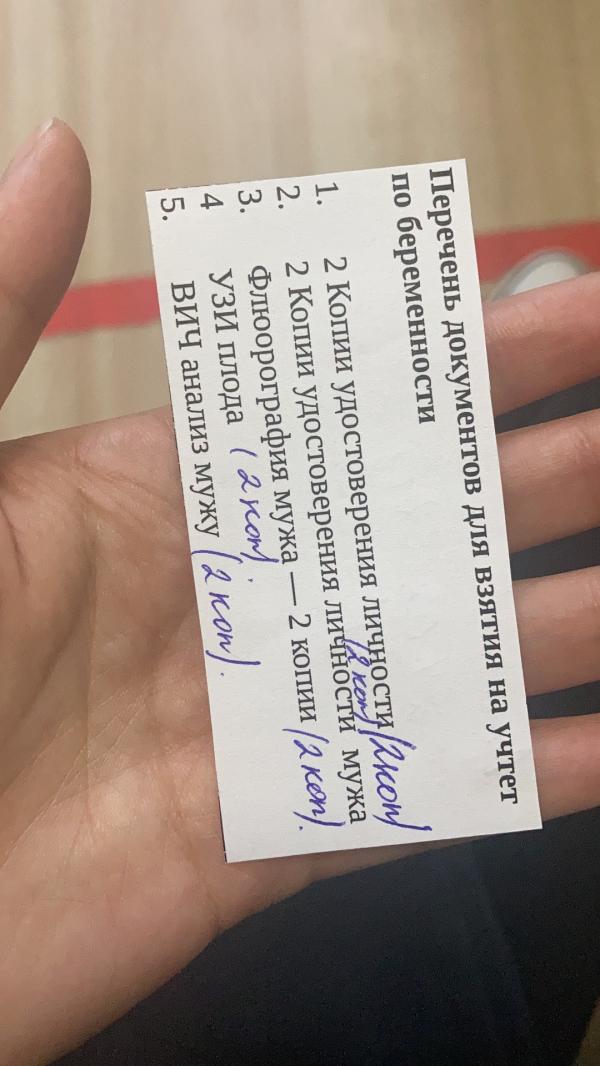 Перечень документов для взятия на учтет
по беременности
1. 2 Копии удостоверения личности (2 коп)
2. 2 Копии удостоверения личности мужа (2 коп)
3. Флюорография мужа — 2 копии (2 коп).
4 УЗИ плода (2 коп).
5. ВИЧ анализ мужу (2 коп).